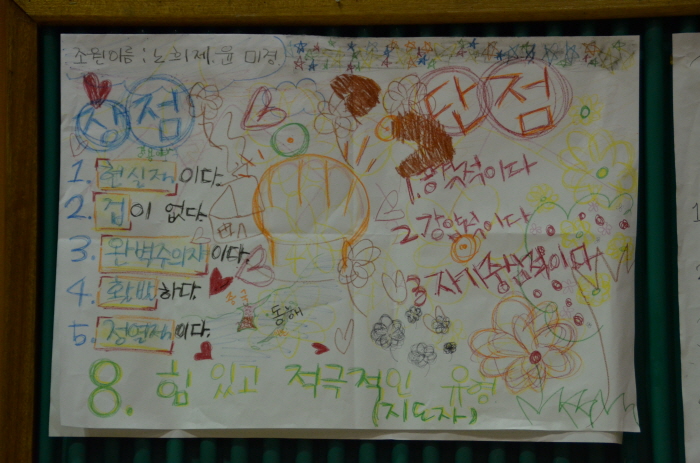 조원이름 : 노희제, 윤 미정
장점
단점
1. 헌신적이다.
2. 겁이 없다.
3. 완벽주의자이다.
4. 활발하다.
5. 정열적이다.
1. 공격적이다
2. 강압적이다
3 자기중심적이다
동해
8. 힘 있고 적극적인 유형
(지도자)